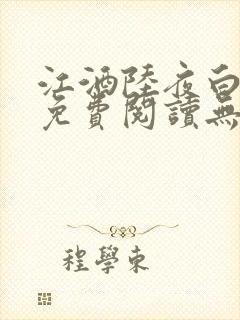 江酒陸夜白
免費閱讀無
程學東